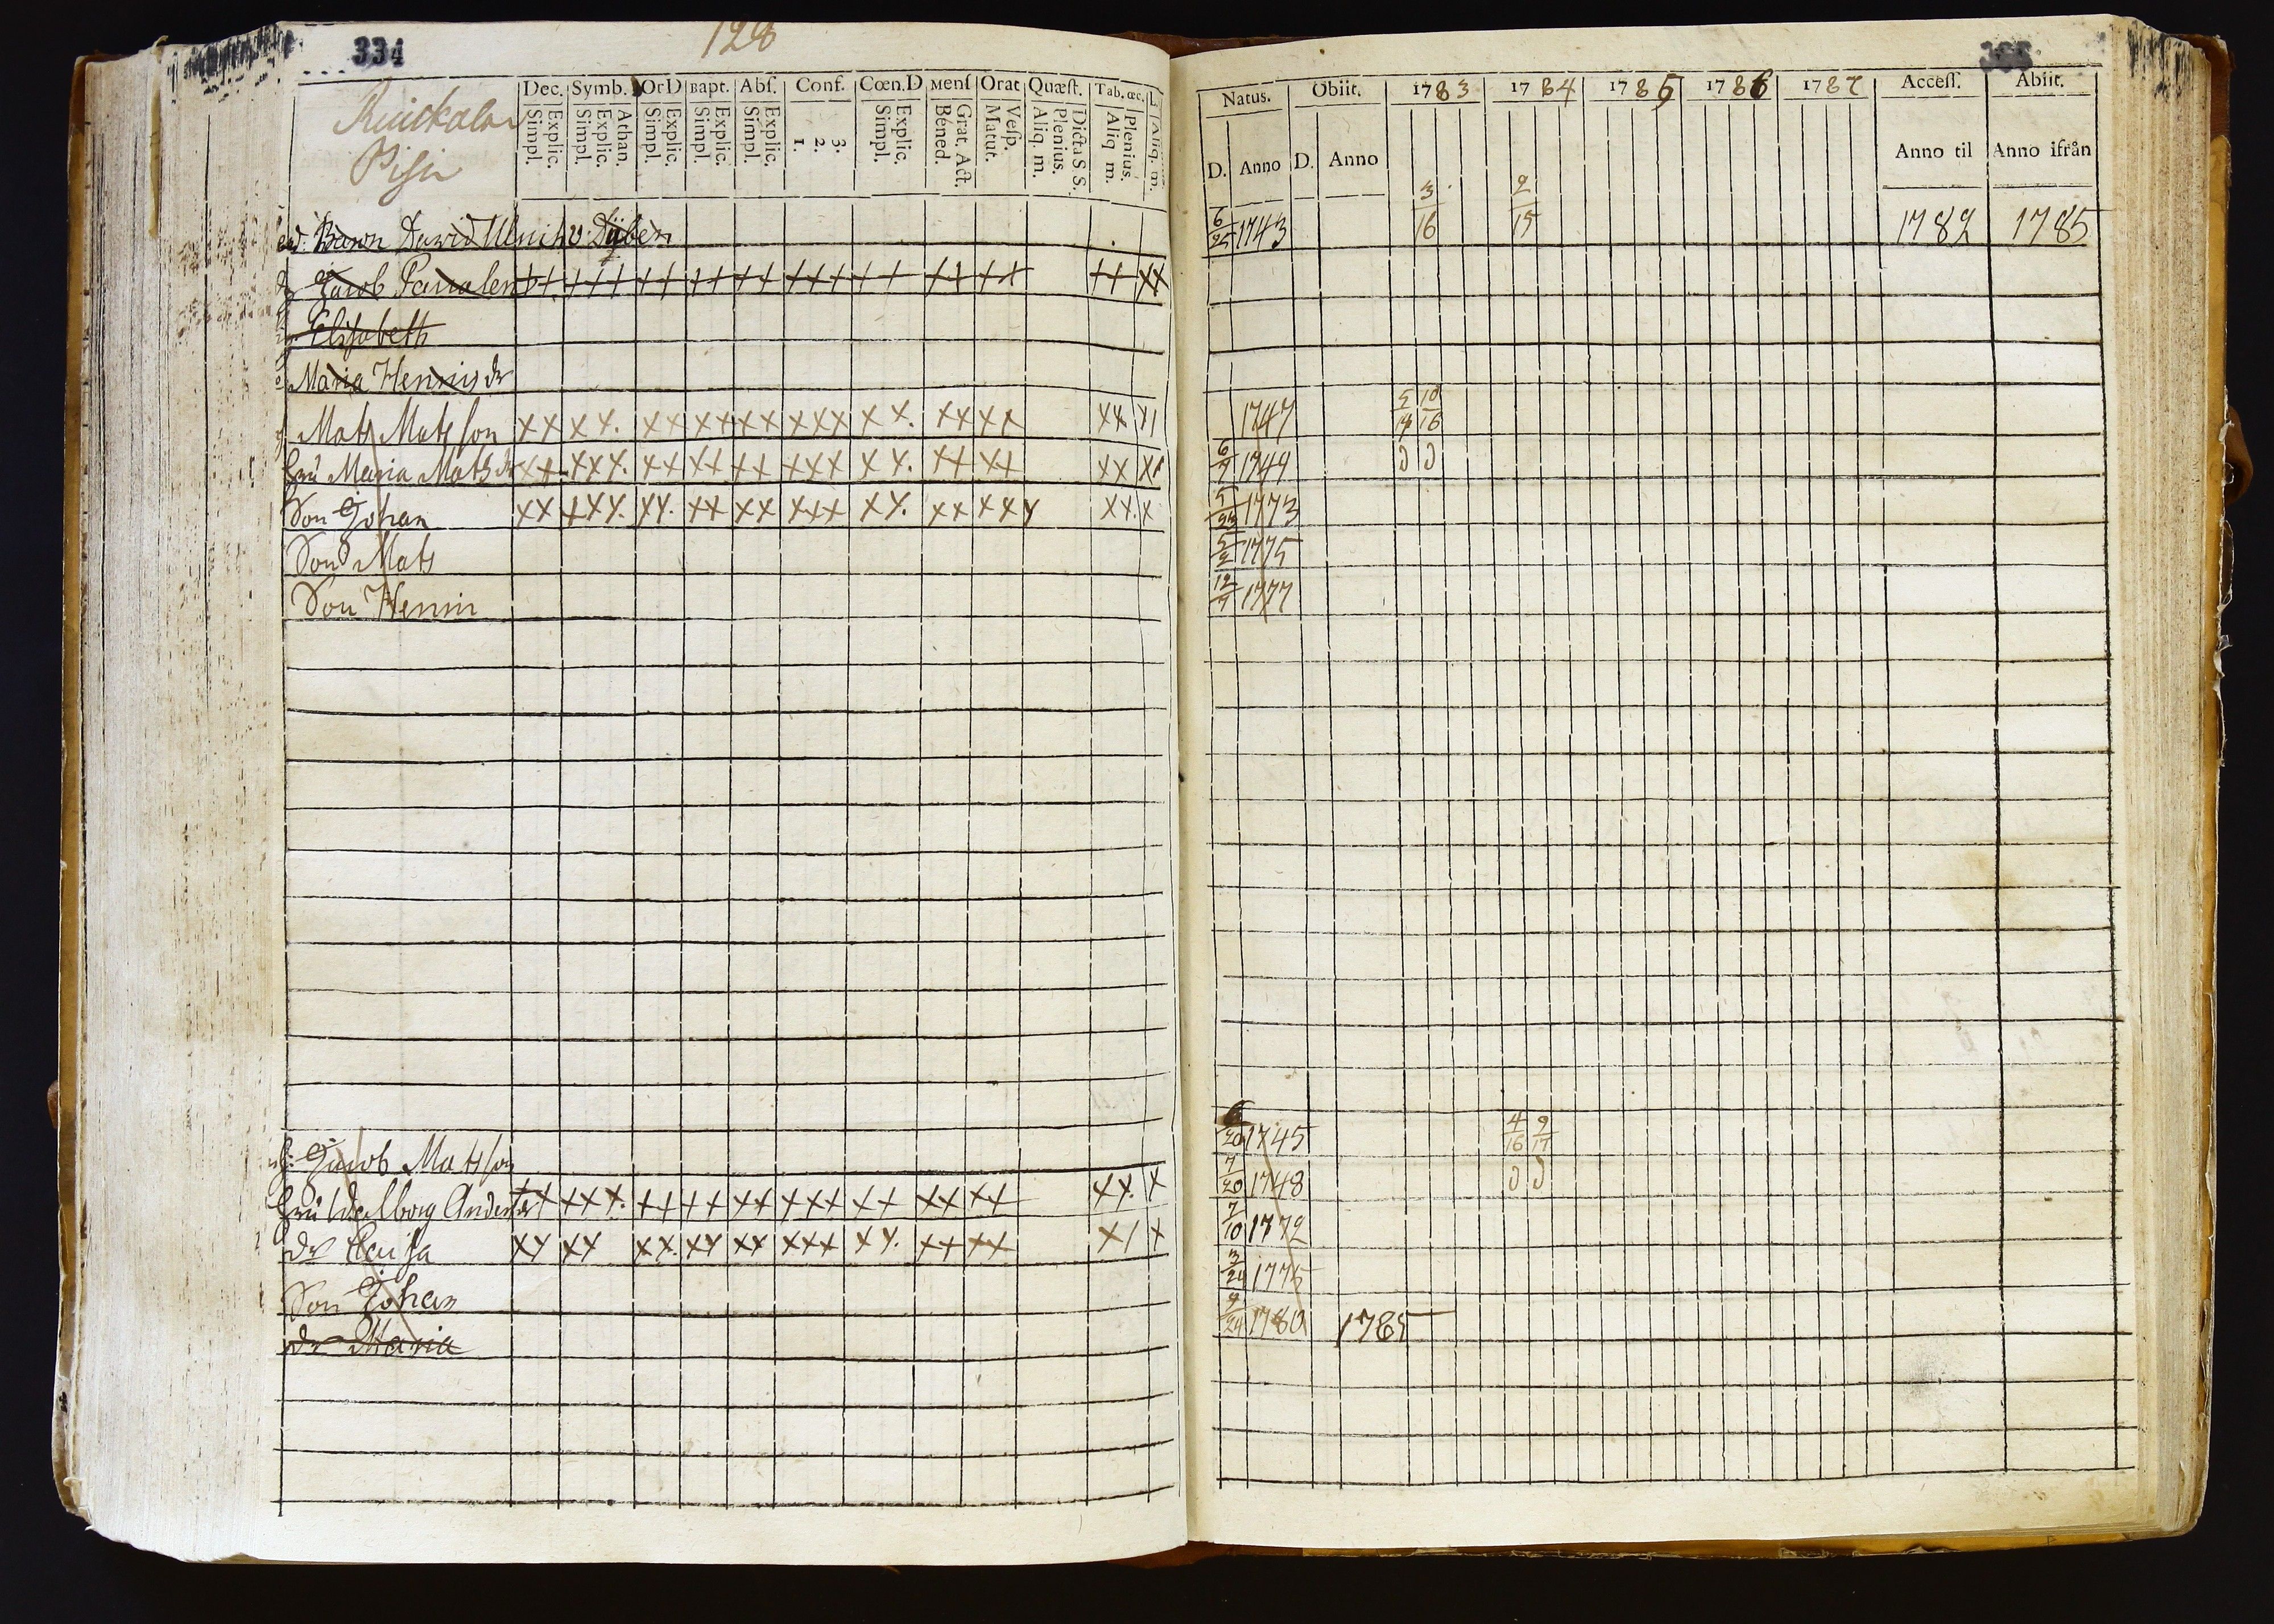 334
128
Dec. Symb. Or D Bapt. Abſ. Conf. Cœn. D Menſ Orat Quæſt. Tab. œc. L.
Explic. Simpl. Athan. Explic. Simpl. Explic. Simpl. Explic. Simpl. Explic. Simpl. 3. 2. 1. Explic. Simpl. Grat. Act. Bened. Veſp. Matut. Dicta S S. Plenius. Aliq. m. Plenius. Aliq m. Aliq. m.
Natus. Obiit. 1783 1784 1785 1786 1787 Acceſſ. Abiit.
D. Anno D. Anno Anno til Anno ifrån
Baron David Ulrich v: Düben 6/25 1743 3/16 9/15 1782 1785
Jacob xx xxx xx xx xx xxx xx xx xx xx xx
Elisabeth
Maria Henrisdr
Mats Matsson xx xx. xx xx xx xxx xx. xx xx xx x1 1747 10/16
hru Maria Matsdr xx xxx. xx xx xx xxx xx. xx xx xx xx 6/9 1749 d d
Son Johan xx xxx. xx. xx xx xxx xx. xx xxx xx. x 1773
Son Mats 5/2 1775
Son Henric 12/9 1777
Jacob Matsson 6/20 1745 4/16 9/17
hru Walborg Andersdr xx xxx. xx xx xx xxx xx xx xx xx. x 7/20 1748 d d
dr Caisa xx xx xx. xx xx xxx xx. xx xx x1 x 7/10 1772
Son Johan 3/20 1775
dr Maria 9/24 1780 1785